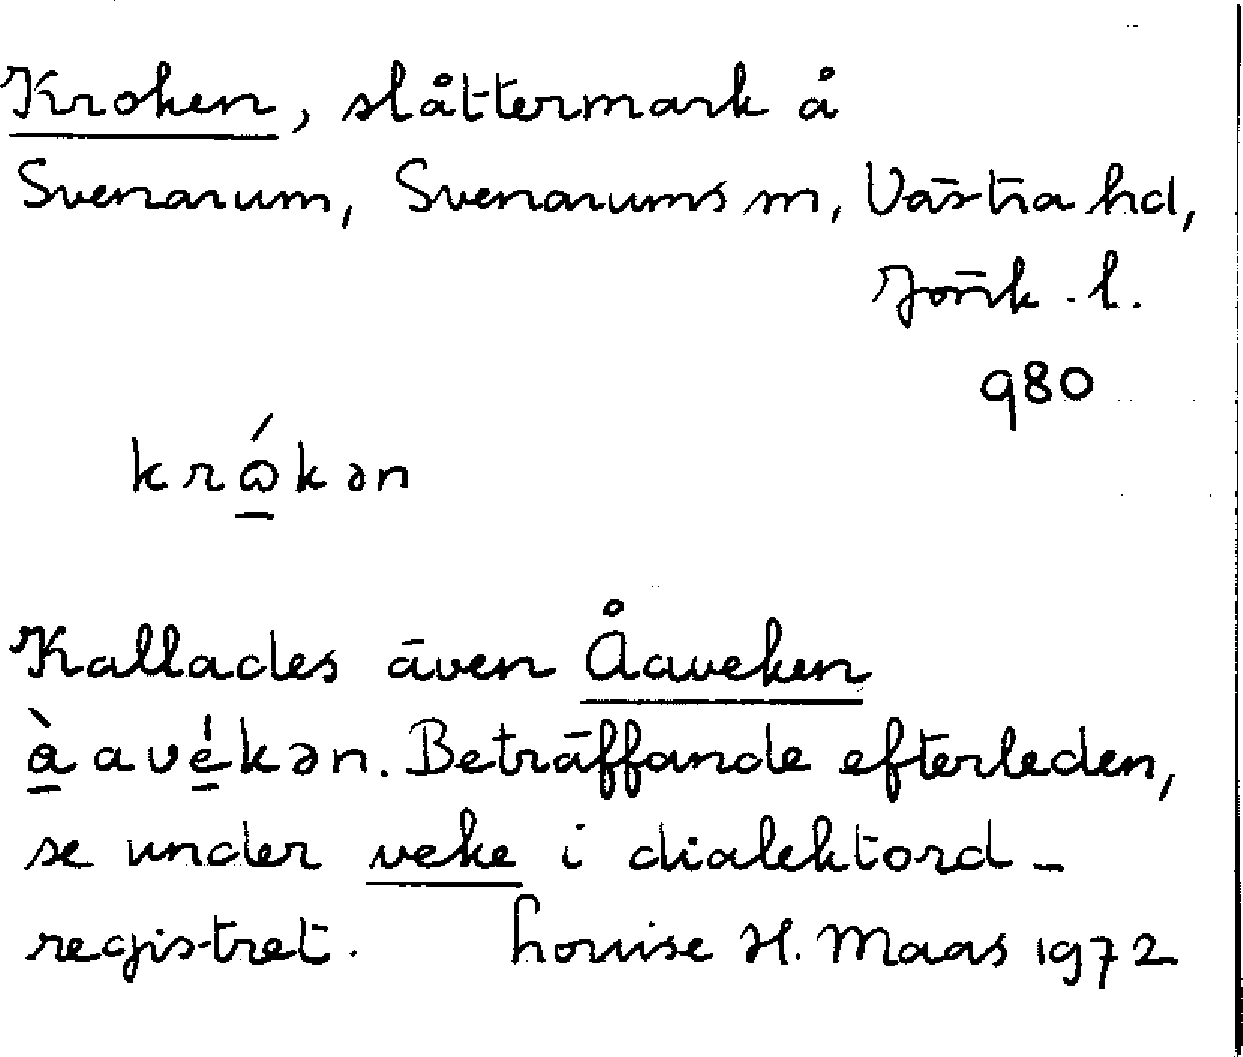 Kroken, slåttermark å
Svenarum, Svenarums sn, Västra hd,
Jönk. l.
980
krɷ́kən
Kallades även Åaveken
àavékən. Beträffande efterleden,
se under veke i dialektord-
registret. Louise H. Maas 1972